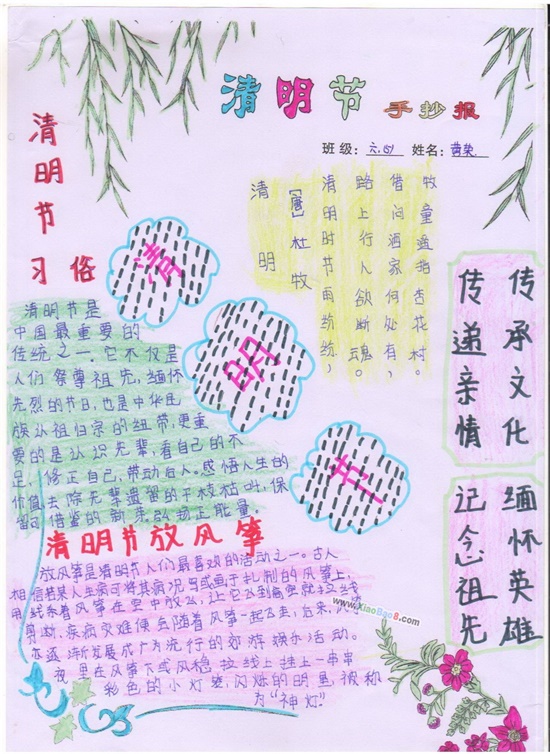 清明节 手抄报
班级：六(4) 姓名：黄荣
清明节
习俗
清明
[唐]杜牧
清明时节雨纷纷，
路上行人欲断魂。
借问酒家何处有，
牧童遥指杏花村。
清
明
节
传承文化
传递亲情
缅怀英雄
记念祖先
清明节是
中国最重要的
传统之一。它不仅是
人们祭尊祖先，缅怀
先烈的节日，也是中华民
族认祖归宗的纽带，更重
要的是认识先辈，看自己的不
足，修正自己，带动后人。感悟人生的
价值，去除先辈遗留的干枝枯叶，保
留可借鉴的新来弘扬正能量。
清明节放风筝
放风筝是清明节人们最喜欢的活动之一。古人
相信某人生病可将其病况写或画于扎制的风筝上，
用线系着风筝在空中放飞，让它飞到高空就拉线
剪断，疾病灾难便会随着风筝一起飞走，后来，风筝
亦逐渐发展成广为流行的郊游娱乐活动。
夜里在风筝下或风稳拉线上挂上一串串
彩色的小灯笼，闪烁的明星，被称
为“神灯”
www.XiaoBao8.com